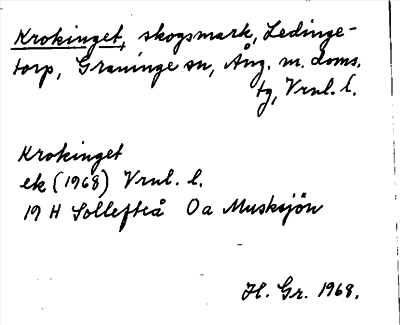 Krokinget, skogsmark, Ledinge-
torp, Graninge sn, Ång. m. doms.
tg, Vrnl. l.
Krokinget
ek (1968) Vrnl. l.
19 H Sollefteå 0a Musksjön
H. Gr. 1968.